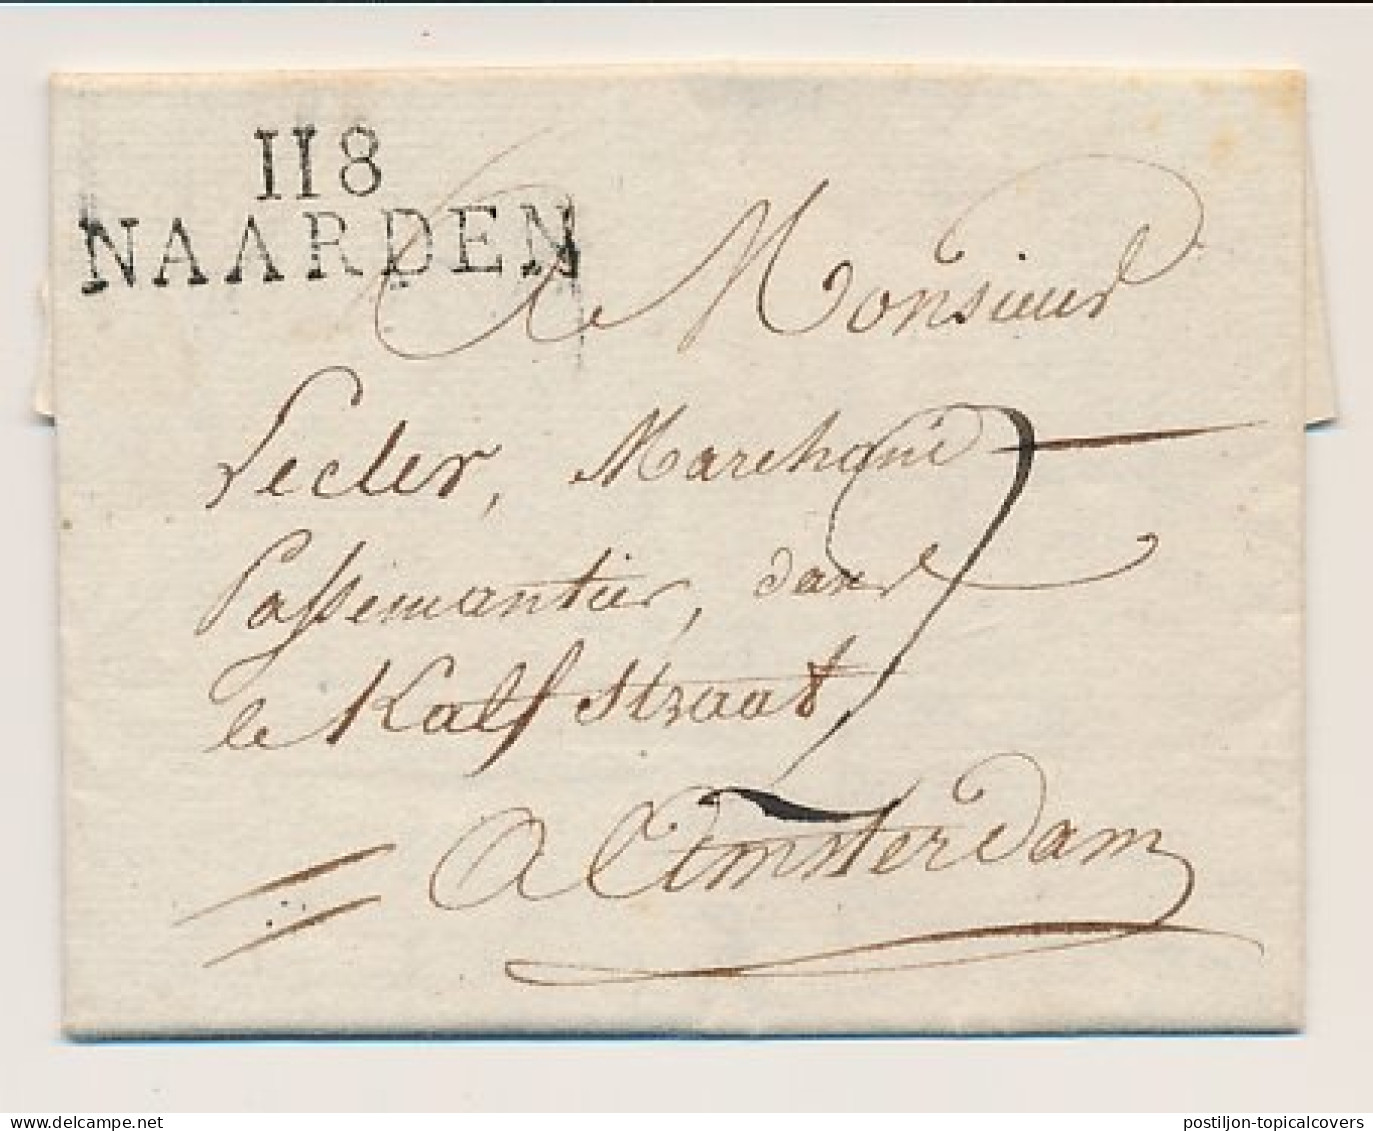 118
NAARDEN
A Monsieur
Lecler, Marchand
Passemantier, dans
le Kalf Straat
A Amsterdam
delcampe.net
postiljon-topicalcovers